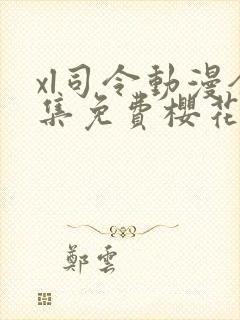 xl司令動漫
集免費櫻花
鄭雲